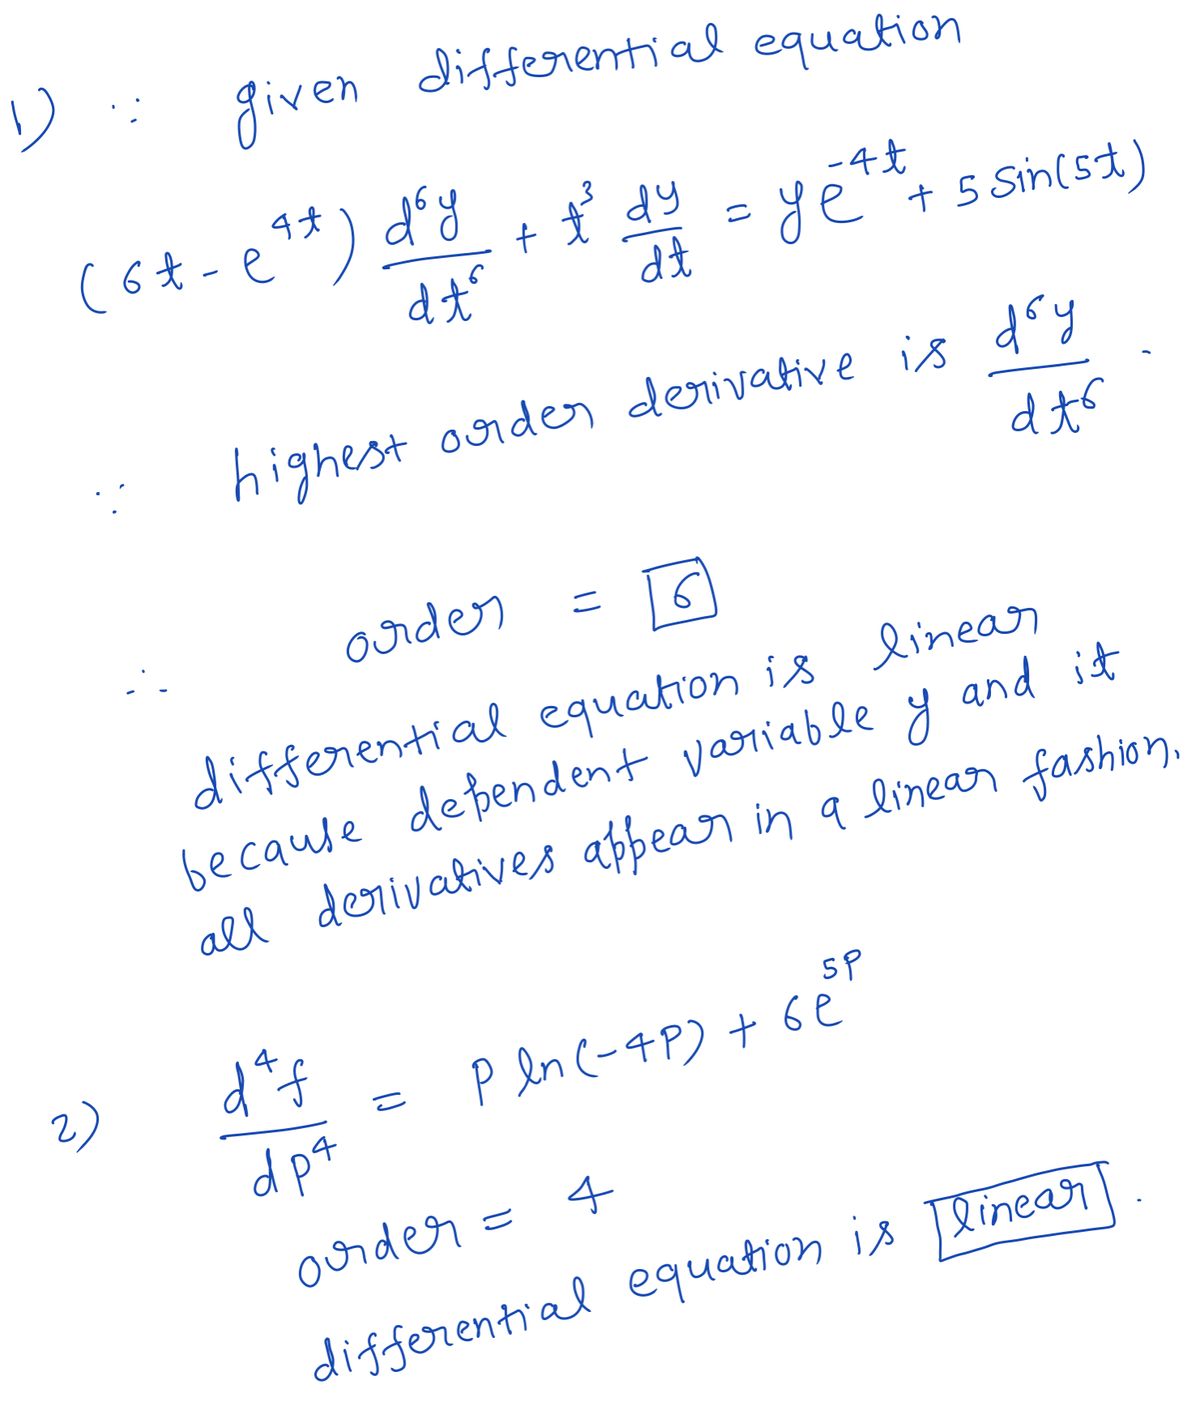 1) ∵ given differential equation
(6t - e^{4t}) d⁶y/dt⁶ + t³ dy/dt = ye^{-4t} + 5 Sin(5t)
∵ highest order derivative is d⁶y/dt⁶.
∴ order = 6
differential equation is linear
because dependent variable y and it
all derivatives appear in a linear fashion.
2) d⁴f/dp⁴ = P ln(-4P) + 6e^{5P}
order = 4
differential equation is linear.